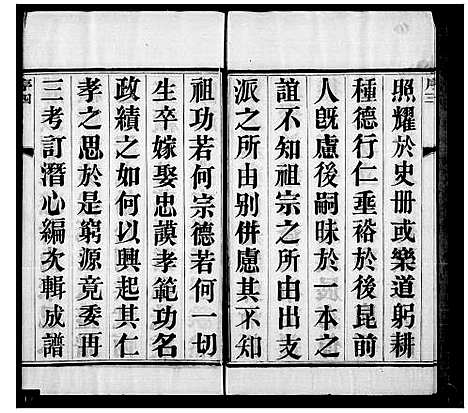 照耀於史册或樂道躬耕
種德行仁垂裕於後昆前
人旣慮後嗣昧於一本之
誼不知祖宗之所由出支
派之所由别併慮其不知
祖功若何宗德若何一切
生卒嫁娶忠謨孝範功名
政績之如何以興起其仁
孝之思於是窮源竟委再
三考訂潛心編次輯成譜
序四